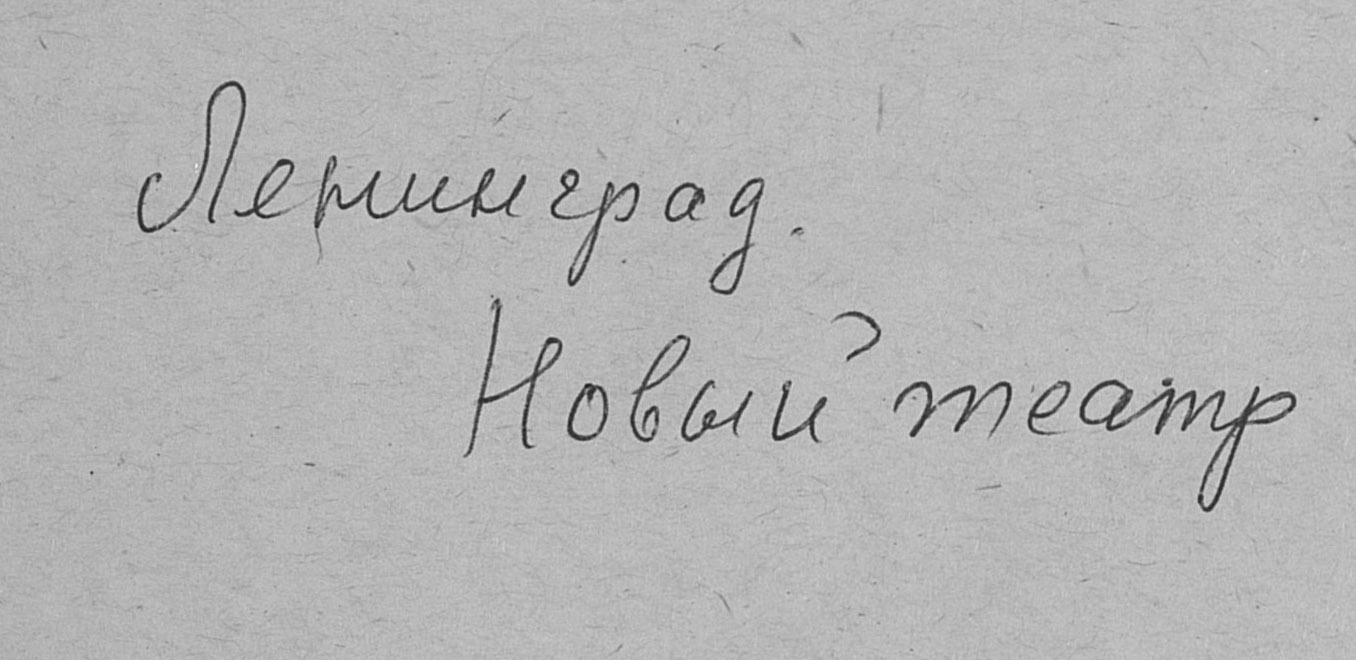 Ленинград.
Новый театр